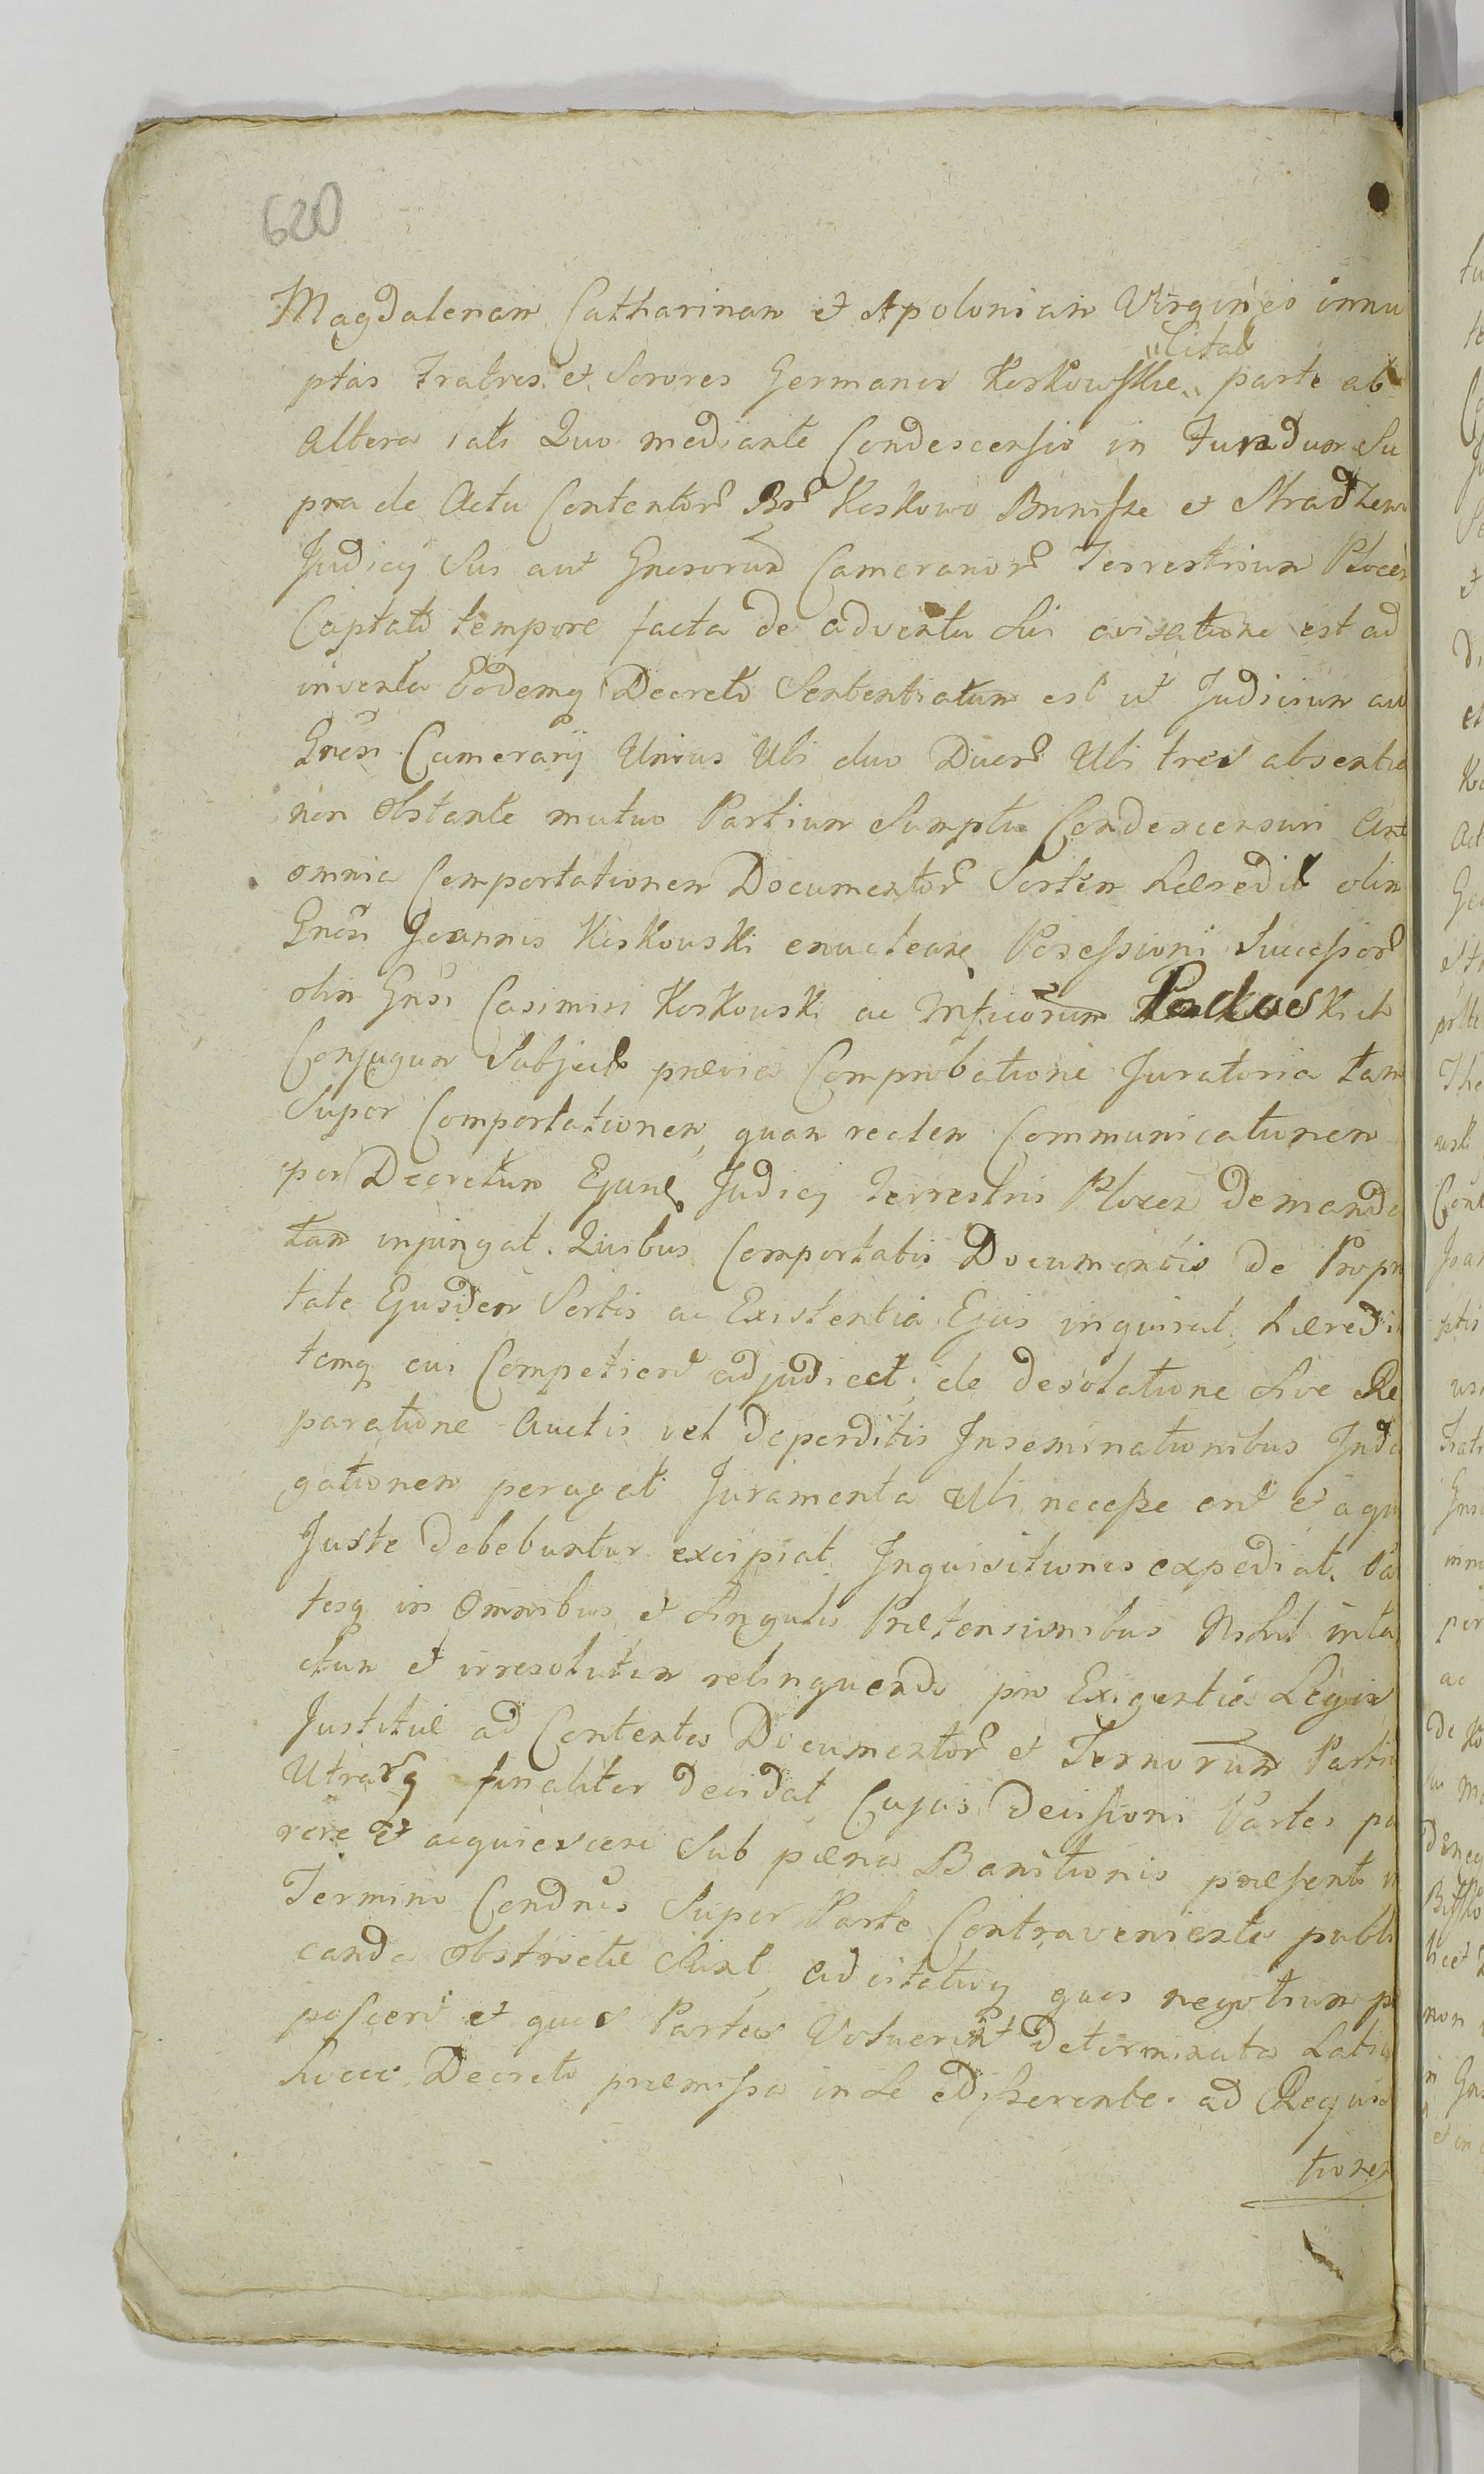 620
Magdalenam Catharinam et Apoloniam Virgines innu
ptas Fratres et Sorores Germanos Koskowskie Citat parte ab
altera lati Quo mediante Condescensio in Fundum Su
pra de Actu Contentor Br Koskowo Bronisze et
Judicij Sui aut Gnerorum Camerarior Terrestrium Plocen
Captato tempore facta de adventu Sui avisatione est ad
inventa Eodemq Decreto Sententiatum est ut Judicium au
Gnesi Camerarij Unius Ubi duo Duor Ubi tres absentia
non obstante mutuo Partium Sumptu Condescensuri Ant
omnia Comportationem Documentor Sortem Hæredit olim
Gnesi Joannis Koskowski enucleare Possessioni Successor
olim Gnsi Casimiri Koskowski ac Mficorum
Conjugum Subject prævia Comprobatione Juratoria tam
Super Comportationem, quam realem Communicationem
per Decretum Ejusd Judicij Terrestris Plocen demanda
tam injungat. Quibus Comportatis Documentis de Propri
tate Ejusdem Sortis ac Existentia Ejus inquirat, Hæredi
temq cui Competierit adjudicet, de desolatione Sive Re
paratione Auctis vel deperditis Inseminationibus Inda
gationem peragat Juramenta Ubi necesse erit et a qui
Juste debebuntur excipiat Inquisitiones expediat. Par
tesq in Omnibus et Singulis Prætensionibus Nihil inta
ctum et irresolutum relinquendo pro Exigentia Legis
Justitiæ ad Contenta Documentor et Partiu
Utrarq finaliter decidat Cujus decisioni Partes pa
rere et acquiescere Sub pæna Banitionis præsenti in
Termino Condnis Super Parte Contraveniente publi
canda obstrictæ Sint, Adcitatioq quas negotium po
posceri et quas Partes Voluerint Determinata Latiu
Suoæ Decreto præmissa in Se edisserente. ad Requisi
tionem